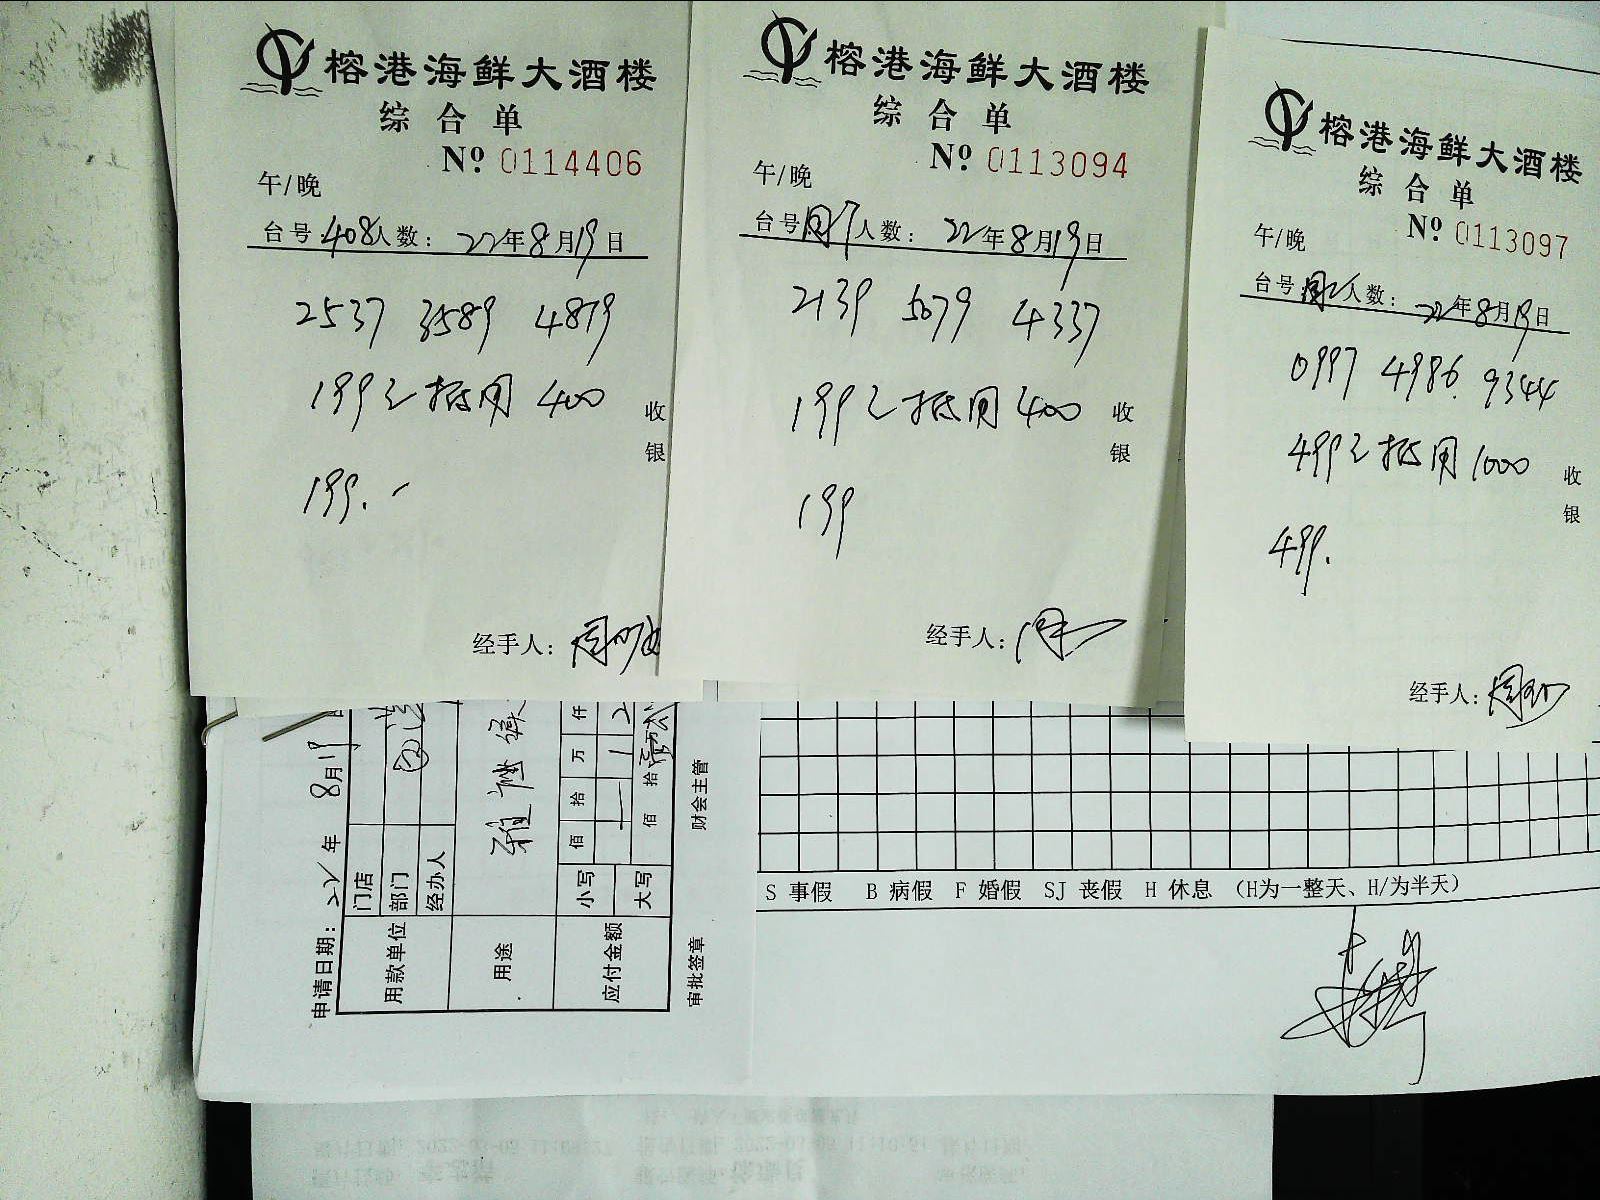 榕港海鲜大酒楼
综合单
№ 0114406
午/晚
台号:408人数: 22年8月19日
2537 3589 4819
199元抵用 400
收银
199.-
经手人:
榕港海鲜大酒楼
综合单
№ 0113094
午/晚
台号 人数: 22年8月19日
2139 5079 4337
199元抵用400
收银
199
经手人:
榕港海鲜大酒楼
综合单
№ 0113097
午/晚
台号: 人数: 22年8月19日
0997 4986. 9344
499元抵用1000
收银
499.
经手人:
申请日期: 22年8月19
用款单位
门店
部门
经办人
用途
应付金额
小写
佰 拾 万 仟
大写
佰 拾
审批签章
财会主管
S 事假 B 病假 F 婚假 SJ 丧假 H 休息 (H为一整天、H/为半天)